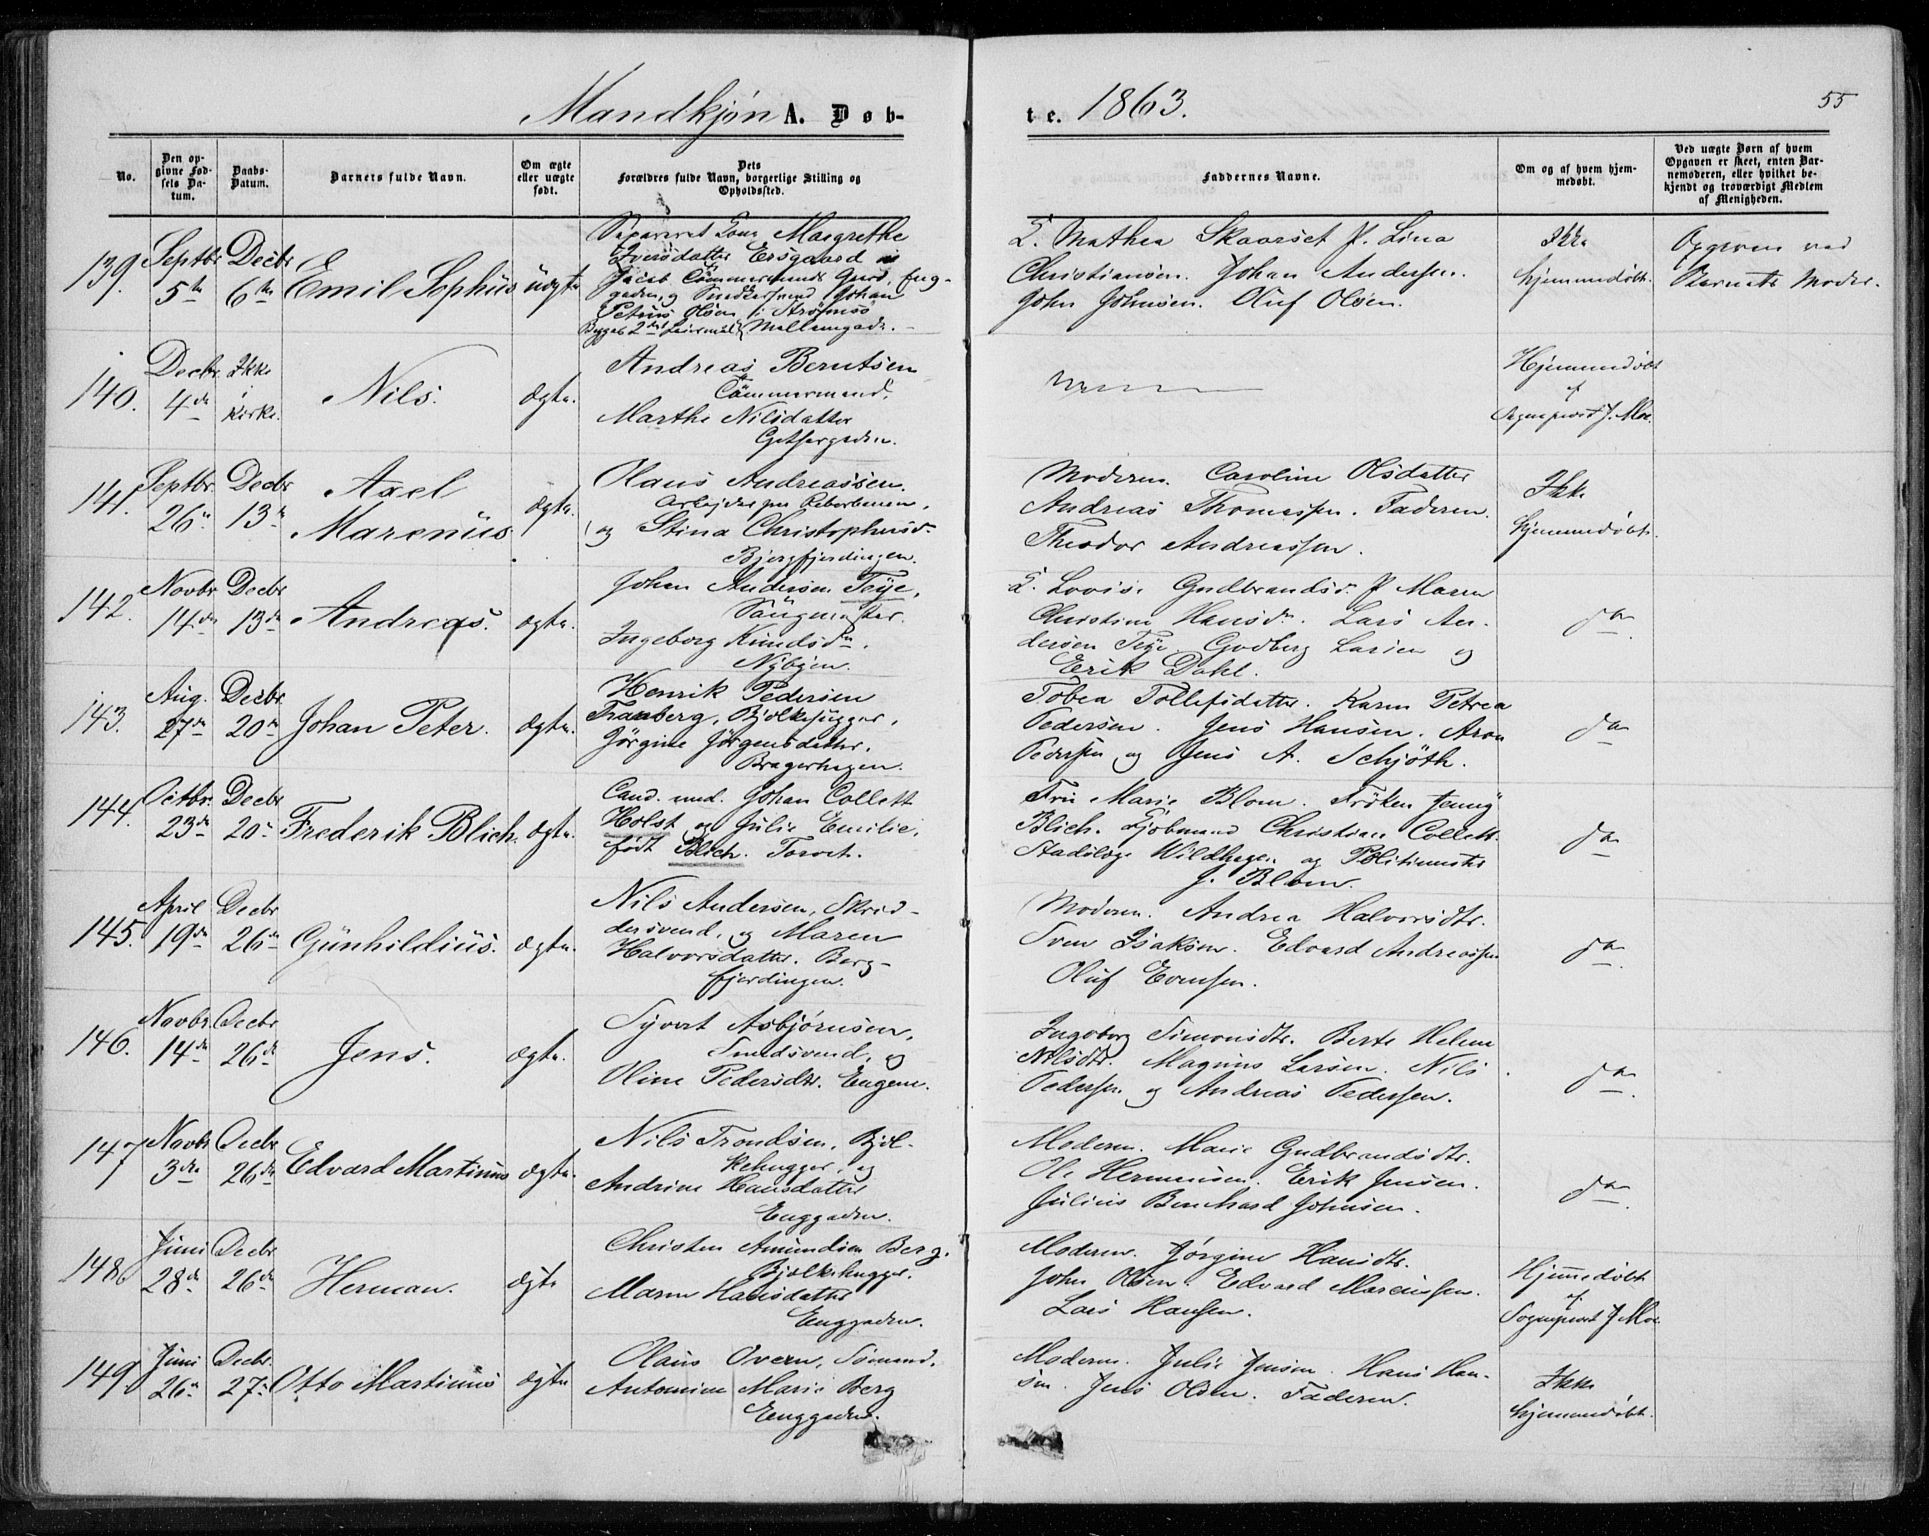 Mandkjøn A. Døb-
te. 1863.
55
No.
Den opgivne Fødsels Datum.
Daabs-Datum.
Barnets fulde Navn.
Om ægte eller uægte født.
Dets Forældres fulde Navn, borgerlige Stilling og Opholdssted.
Faddernes Navne.
Om og af hvem hjemmedøbt.
Ved uægte Børn af hvem Opgaven er skeet, enten Barnemoderen, eller hvilket bekjendt og troværdigt Medlem af Menigheden.
139. Septbr 5te Decbr 6te Emil Sophus uægte
Separeret Kone Margrethe
Iversdatter Ersgaard i
Jacob Tömmermands Gaard, Eng-
gaden, og Snedkersvend Johan
Petrus Olsen i Strömsö
Begges 2det Leiermaal. Mellemgade.
E. Mathea Skaarset P. Lina
Christiansen. Johan Andersen.
John Johnsen. Oluf Olsen.
Ikke
hjemmedöbt.
Opgiven ved
Barnets Moder.
140. Decbr. 4de Ikke i Kirke. Nils. ægte.
Andreas Berntsen
Tömmermand,
Marthe Nilsdatter
Hjemmedöbt
af
Sognepræst J. Moe.
141. Septbr. 26de Decbr 13de Axel
Marenius ægte.
Olaus Andreassen.
Arbeider paa Reberbanen,
og Stina Christophersd.
Bjergfjerdingen.
Moderen. Caroline Olsdatter
Andreas Thomassen. Faderen.
Theodor Andreassen.
Ikke
hjemmedöbt.
142. Novbr 14de Decbr 13de Andreas. ægte.
Johan Andersen Teye,
Saugmester.
Ingeborg Knudsdr.
Nybyen.
E. Lovise Gudbrandsd. P. Maren
Christine Hansdr. Lars An-
dersen Teye. Gudberg Larsen og
Erik Dahl.
do
143. Aug. 27de Decbr. 20de Johan Peter. ægte.
Henrik Pedersen
Tranberg, Bjelkehugger,
Jörgine Jörgensdatter.
Bragerhagen.
Tobea Tollefsdatter. Karen Petrea
Pedersen. Jens Hansen. Aron
Pedersen og Jens A. Schjöth.
do
144. Octbr. 23de Decbr 20de Frederik Blich. ægte.
Cand. med. Johan Collett
Holst og Julie Emilie,
født Blich. Torvet.
Fru Marie Blom. Frøken Jenny
Blich. Kjöbmand Christian Collett.
Stadslæge Wildhagen og Politimester
J. Blom.
do
145. April 19de Decbr 26de Gunhildius. ægte.
Nils Andersen, Skræd-
dersvend, og Maren
Halvorsdatter. Berg-
fjerdingen.
Moderen. Andrea Halvorsdtr.
Sven Isaksen. Edvard Andreassen
Oluf Evensen.
do.
146. Novbr. 14de Decbr 26de Jens. ægte.
Syvert Asbjørnsen,
Smedsvend, og
Oline Pedersdtr. Engene.
Ingeborg Simonsdtr. Berte Helene
Nilsdtr. Magnus Larsen. Nils
Pedersen og Andreas Pedersen.
do.
147 Novbr 3die Decbr 26de Edvard Martinius ægte.
Nils Trondsen, Bjel-
kehugger, og
Andrine Hansdatter
Enggaden.
Moderen. Marie Gudbrandsdtr.
Ole Hermansen. Erik Jensen.
Julius Bernhard Johnsen.
do.
148. Juni 28de Decbr 26de Herman. ægte
Christen Amundsen Berg,
Bjelkehugger.
Maren Hansdatter
Enggaden.
Moderen. Jörgine Hansdtr.
John Olsen. Edvard Marcussen.
Lars Hansen.
Hjemmedöbt
af
Sognepræst J. Moe.
149. Juni 26de Decbr. 27de Otto Martinius ægte
Olaus Overn, Sömand.
Antomine Marie Berg
Enggaden.
Moderen. Julie Jensen. Hans Han-
sen. Jens Olsen. Faderen.
Ikke
hjemmedöbt.